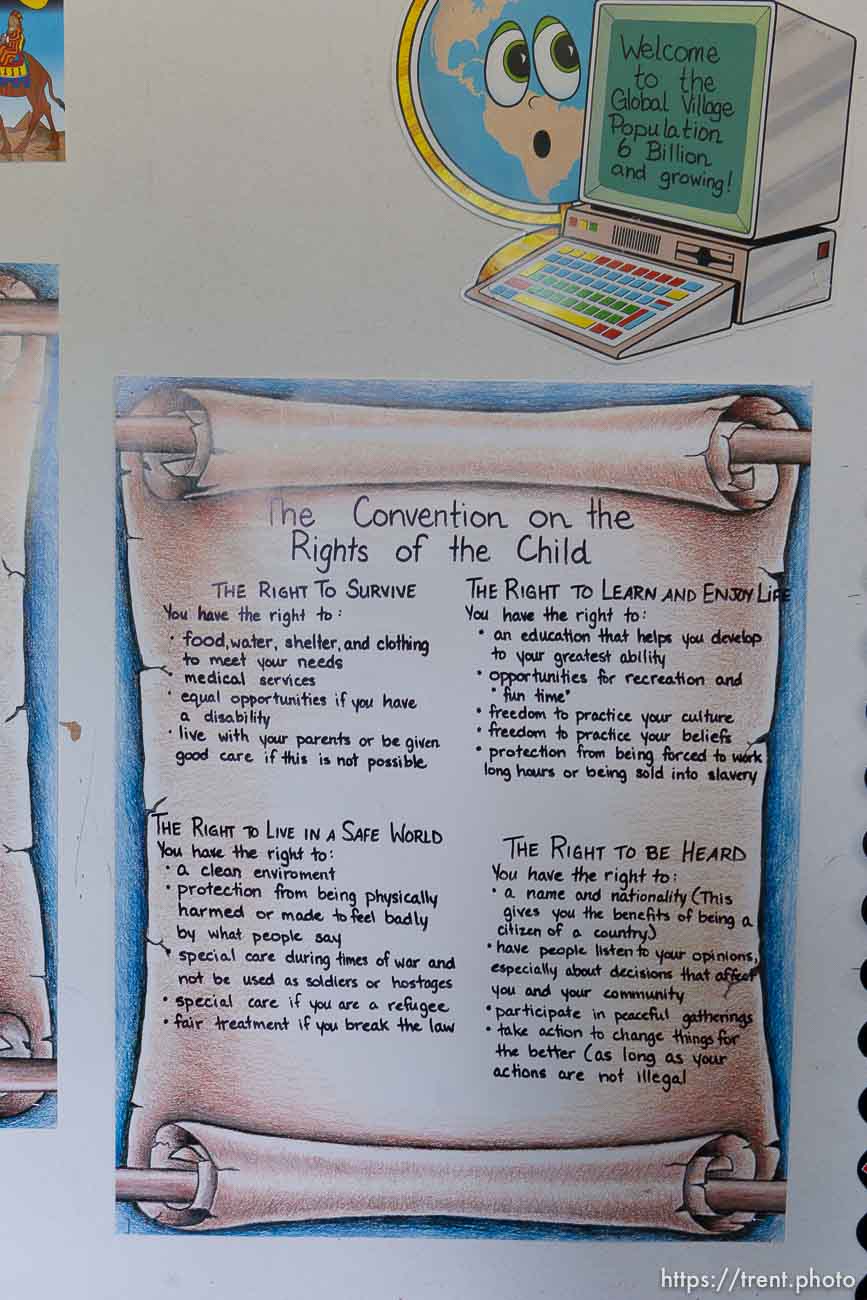 Welcome
to the
Global Village
Population
6 Billion
and growing!
The Convention on the
Rights of the Child
THE RIGHT TO SURVIVE
You have the right to:
• food, water, shelter, and clothing
to meet your needs
• medical services
• equal opportunities if you have
a disability
• live with your parents or be given
good care if this is not possible
THE RIGHT TO LEARN AND ENJOY LIFE
You have the right to:
• an education that helps you develop
to your greatest ability
• opportunities for recreation and
"fun time"
• freedom to practice your culture
• freedom to practice your beliefs
• protection from being forced to work
long hours or being sold into slavery
THE RIGHT TO LIVE IN A SAFE WORLD
You have the right to:
• a clean enviroment
• protection from being physically
harmed or made to feel badly
by what people say
• special care during times of war and
not be used as soldiers or hostages
• special care if you are a refugee
• fair treatment if you break the law
THE RIGHT TO BE HEARD
You have the right to:
• a name and nationality (This
gives you the benefits of being a
citizen of a country)
• have people listen to your opinions,
especially about decisions that affect
you and your community
• participate in peaceful gatherings
• take action to change things for
the better (as long as your
actions are not illegal
https://trent.photo